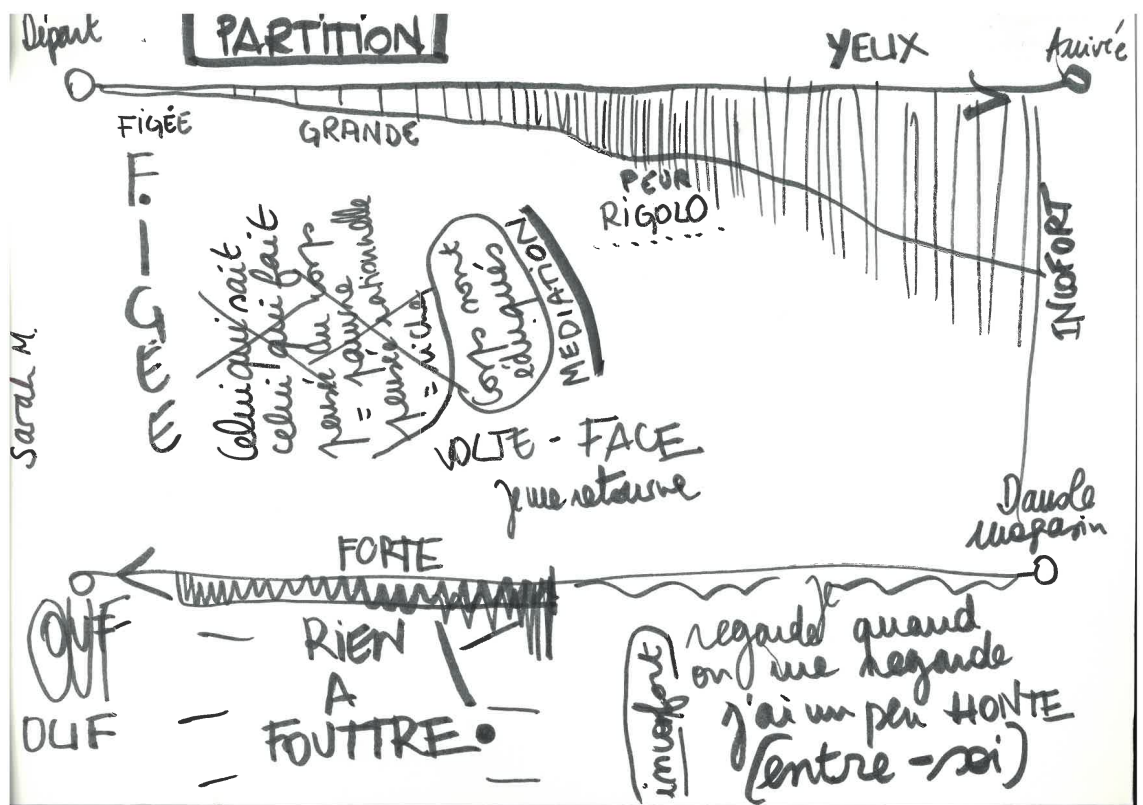 Départ
PARTITION
YEUX
Arrivée
FIGÉE
GRANDE
PEUR
RIGOLO
INCOFORT
F.IGÉE
celui qui sait
celui qui fait
pensée du corps
= pauvre
pensée rationnelle
= riche
corps non
éduqués
MEDIATION
Sarah M.
VOLTE - FACE
je me retourne
Dans le
magasin
FORTE
OUF
OUF
RIEN
A
FOUTTRE
incofort
je
regarde quand
on me regarde
j'ai un peu HONTE
(entre-soi)